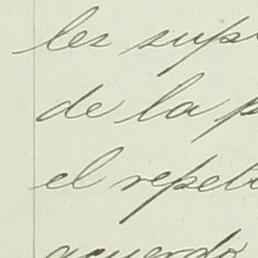 les sup
de la p
el repet
acuerdo